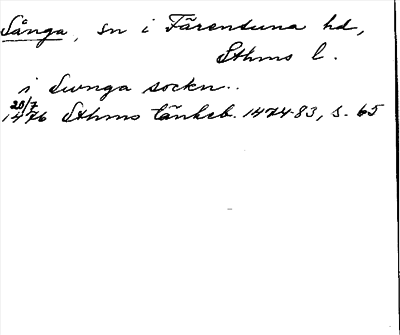 Sånga, sn i Färentuna hd,
Sthms l.
i Swnga sockn..
20/7
1476 Sthms tänkeb. 1474-83, s. 65